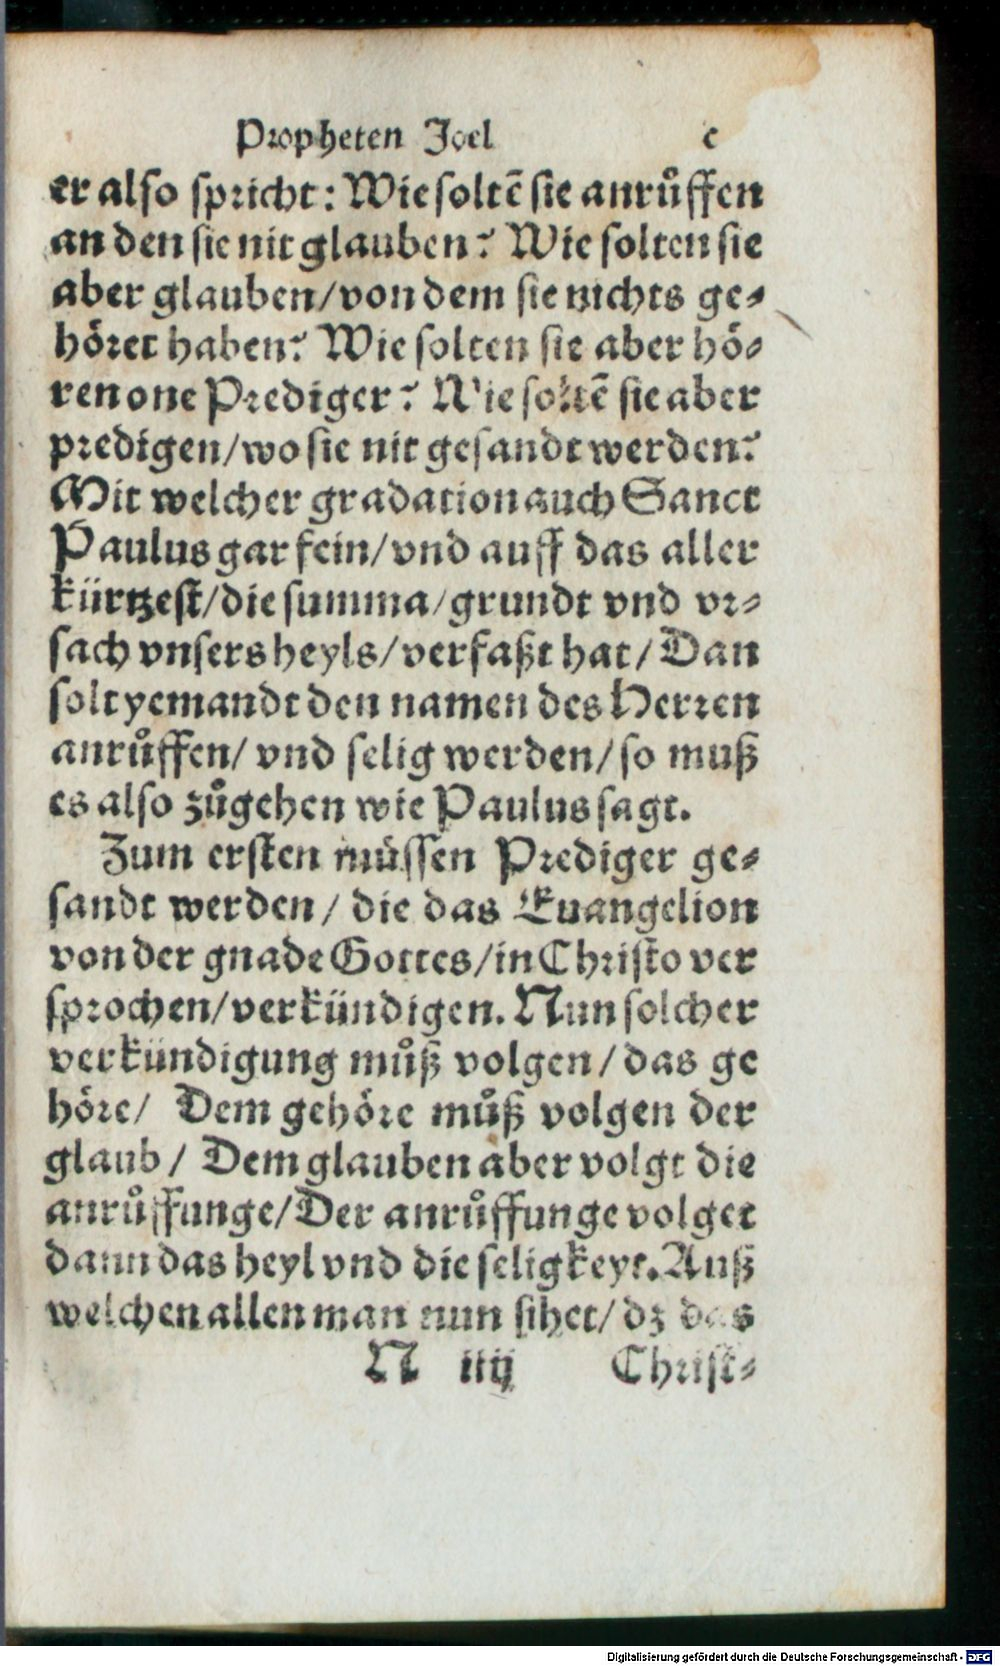 Propheten Joel c
er also spricht: Wie soltē sie anrůffen
an den sie nit glauben? Wie solten sie
aber glauben/von dem sie nichts ge-
höret haben? Wie solten sie aber hö-
ren one Prediger? Wie soltē sie aber
predigen/wo sie nit gesandt werden?
Mit welcher gradation auch Sanct
Paulus gar fein/vnd auff das aller
kürtzest/die summa/grundt vnd vr-
sach vnsers heyls/verfaßt hat/Dan
solt yemandt den namen des Herren
anrůffen/ vnd selig werden/so muß
es also zůgehen wie Paulus sagt.
Zum ersten müssen Prediger ge-
sandt werden/ die das Euangelion
von der gnade Gottes/in Christo ver
sprochen/verkündigen. Nun solcher
verkündigung můß volgen/das ge
höre/ Dem gehöre můß volgen der
glaub/ Dem glauben aber volgt die
anrůffunge/Der anrůffunge volget
dann das heyl vnd die seligkeyt. Auß
welchen allen man nun sihet/ dz das
N iiij Christ-
Digitalisierung gefördert durch die Deutsche Forschungsgemeinschaft - DFG